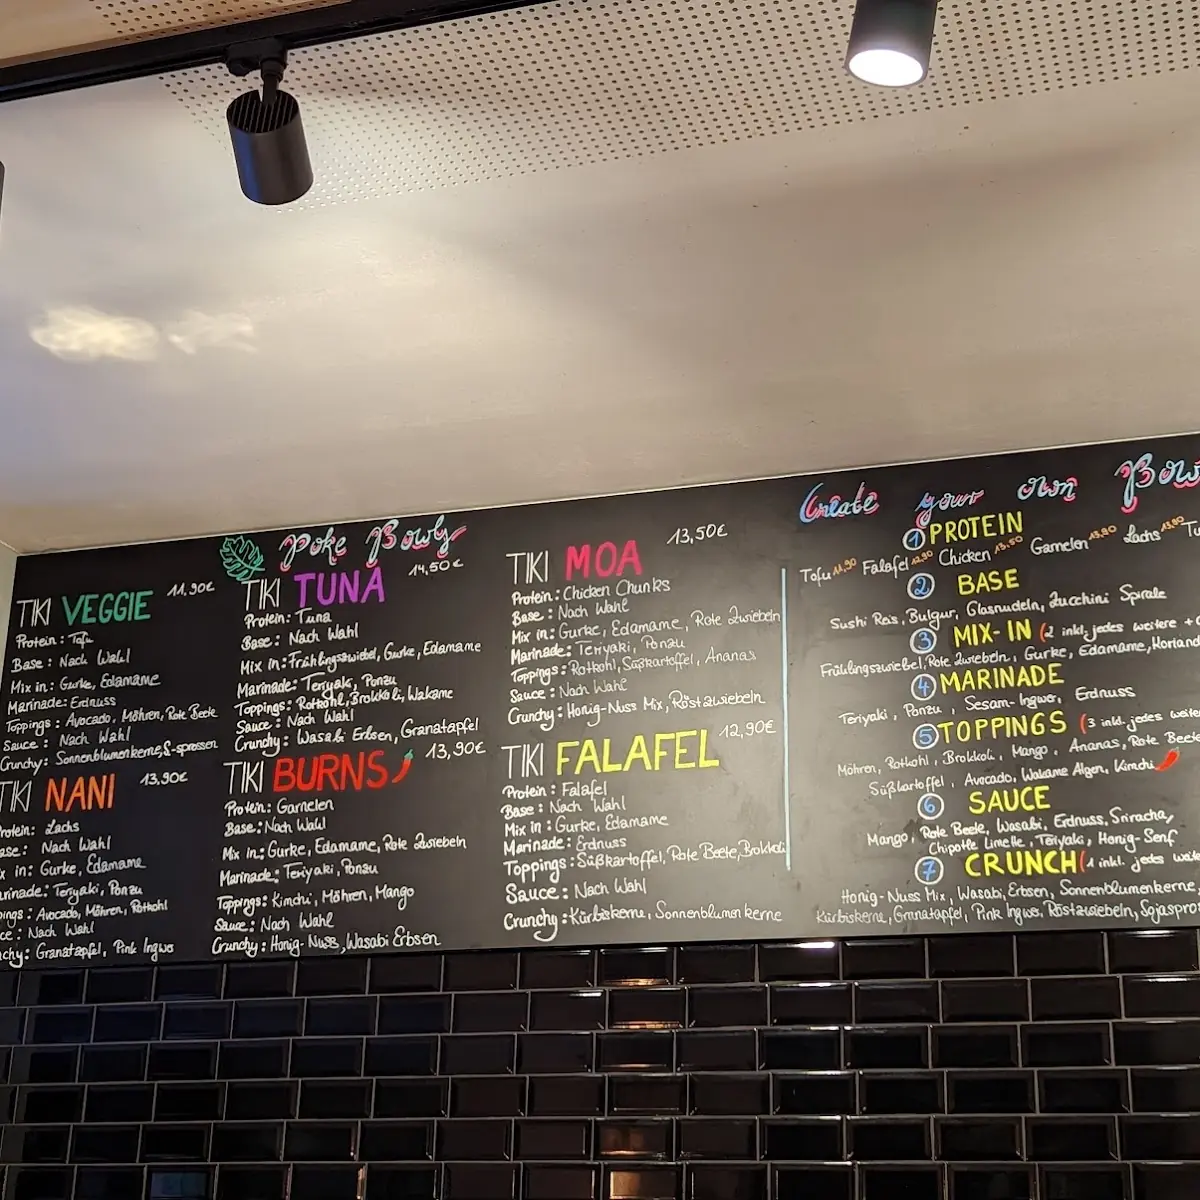 Poke Bowls
TIKI VEGGIE 11,90€
Protein: Tofu
Base: Nach Wahl
Mix in: Gurke, Edamame
Marinade: Erdnuss
Toppings: Avocado, Möhren, Rote Beete
Sauce: Nach Wahl
Crunchy: Sonnenblumenkerne, S-sprossen
TIKI NANI 13,90€
Protein: Lachs
Base: Nach Wahl
Mix in: Gurke, Edamame
Marinade: Teriyaki, Ponzu
Avocado, Möhren, Rotkohl
Nach Wahl
Granatapfel, Pink Ingwer
TIKI TUNA 14,50€
Protein: Tuna
Base: Nach Wahl
Mix in: Frühlingszwiebel, Gurke, Edamame
Marinade: Teriyaki, Ponzu
Toppings: Rotkohl, Brokkoli, Wakame
Sauce: Nach Wahl
Crunchy: Wasabi Erbsen, Granatapfel
TIKI BURNS 13,90€
Protein: Garnelen
Base: Nach Wahl
Mix in: Gurke, Edamame, Rote Zwiebeln
Marinade: Teriyaki, Ponzu
Toppings: Kimchi, Möhren, Mango
Sauce: Nach Wahl
Crunchy: Honig-Nuss, Wasabi Erbsen
TIKI MOA 13,50€
Protein: Chicken Chunks
Base: Nach Wahl
Mix in: Gurke, Edamame, Rote Zwiebeln
Marinade: Teriyaki, Ponzu
Toppings: Rotkohl, Süßkartoffel, Ananas
Sauce: Nach Wahl
Crunchy: Honig-Nuss Mix, Röstzwiebeln
TIKI FALAFEL 12,90€
Protein: Falafel
Base: Nach Wahl
Mix in: Gurke, Edamame
Marinade: Erdnuss
Toppings: Süßkartoffel, Rote Beete, Brokkoli
Sauce: Nach Wahl
Crunchy: Kürbiskerne, Sonnenblumenkerne
Create your own Bow
1 PROTEIN
Tofu 11,90 Falafel 12,90 Chicken 13,50 Garnelen 13,90 Lachs 13,90 Tu
2 BASE
Sushi Reis, Bulgur, Glasnudeln, Zucchini Spirale
3 MIX-IN (2 inkl. jedes weitere +
Frühlingszwiebel, Rote Zwiebeln, Gurke, Edamame,
4 MARINADE
Teriyaki, Ponzu, Sesam-Ingwer, Erdnuss
5 TOPPINGS (3 inkl. jedes weite
Möhren, Rotkohl, Brokkoli, Mango, Ananas, Rote Beete
Süßkartoffel, Avocado, Wakame Algen, Kimchi
6 SAUCE
Mango, Rote Beete, Wasabi, Erdnuss, Sriracha,
Chipotle Limette, Teriyaki, Honig-Senf
7 CRUNCH (1 inkl. jedes weite
Honig-Nuss Mix, Wasabi, Erbsen, Sonnenblumenkerne,
Kürbiskerne, Granatapfel, Pink Ingwer, Röstzwiebeln, Sojaspro